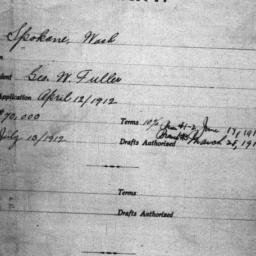 Spokane, Wash
Geo. W. Fuller
Application April 12/1912
70,000 Terms 10% June 17, 191
July 13/1912 Drafts Authorized March 25, 191
Terms
Drafts Authorized